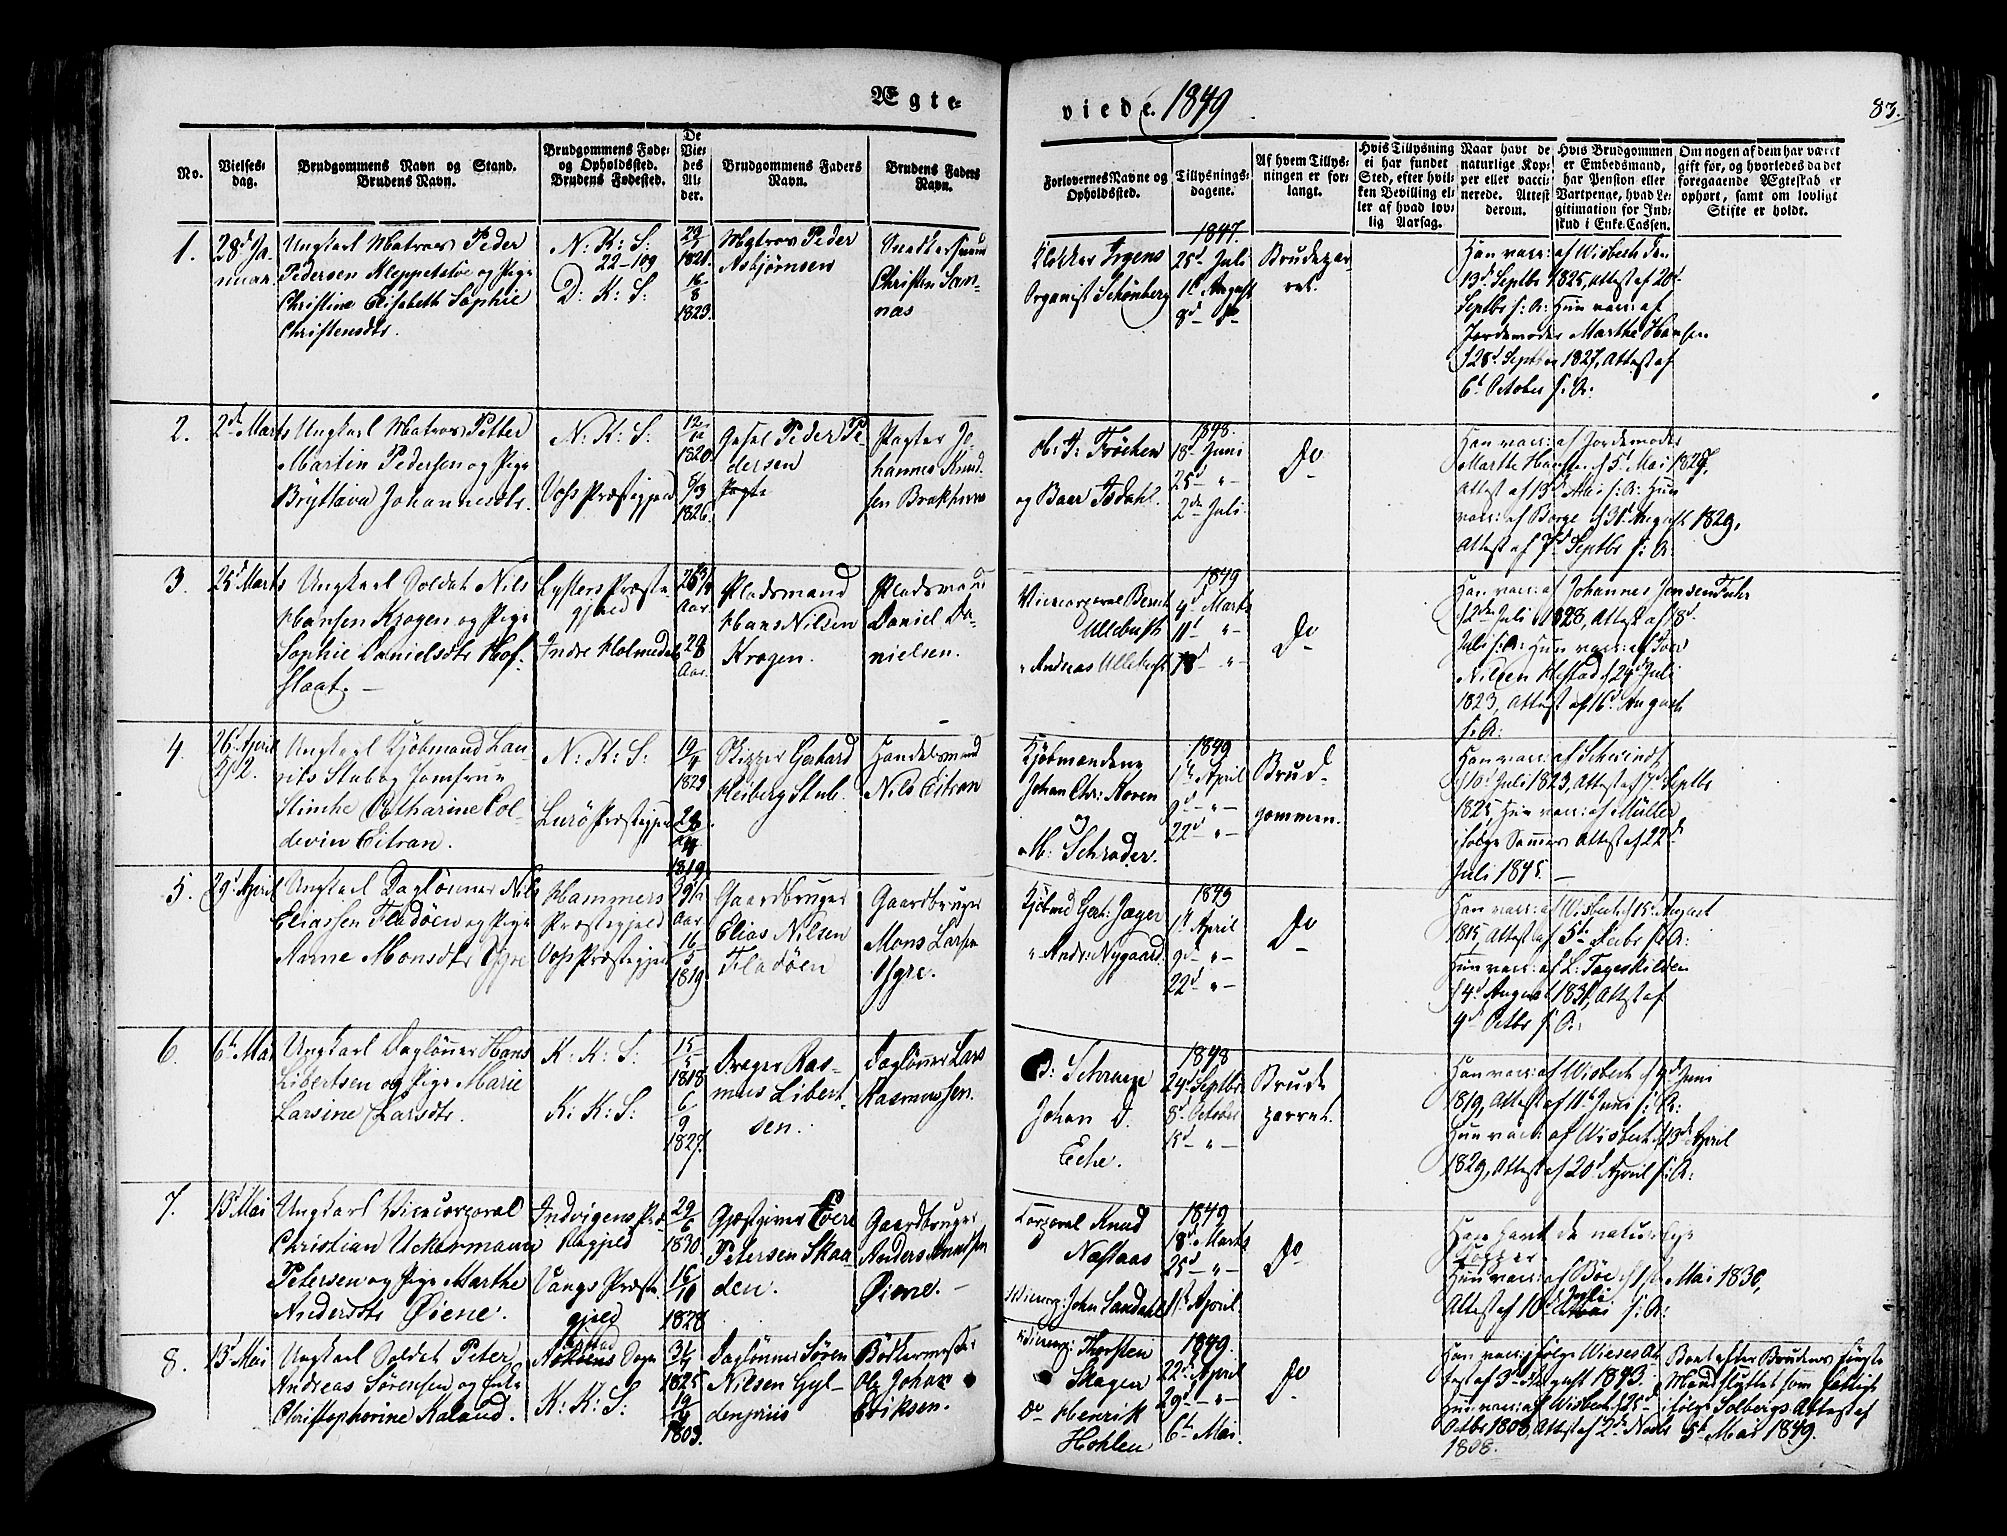 Ægte-
viede. 1849
83.
No.
Vielses-
dag.
Brudgommens Navn og Stand.
Brudens Navn.
Brudgommens Føde-
og Opholdssted.
Brudens Fødested.
De
Vie-
des
Al-
der.
Brudgommens Faders
Navn.
Brudens Faders
Navn.
Forlovernes Navne og
Opholdssted.
Tillysnings-
dagene.
Af hvem Tillys-
ningen er for-
langt.
Hvis Tillysning
ei har fundet
Sted, efter hvil-
ken Bevilling el-
ler af hvad lov-
lig Aarsag.
Naar havt de
naturlige Kop-
per eller vacci-
nerede. Attest
derom.
Hvis Brudgommen
er Embedsmand,
har Pension eller
Vartpenge, hvad Le-
gitimation for Ind-
skud i Enke-Cassen.
Om nogen af dem har været
gift før, og hvorledes da det
foregaaende Ægteskab er
ophørt, samt om lovligt
Skifte er holdt.
1.
28d Ja-
nuar.
Ungkarl Matros Peder
Pedersen Kleppestøe og Pige
Christine Elisabeth Sophie
Christensdtr.
N: K: S:
22-109
D: K: S:
1821
16/8
1823.
Matros Peder
Asbjørnsen
Christen
nas
Klokker Irgens
Organist Schønberg
1847.
25d Juli
1t August
8d do
Brudepar-
ret.
Han vacc: af Wisbech den
13d Septbr 1825, Attest af 20d
Septbr s: A: Hun vacc: af
Jordemoder Marthe Hansen
d 28d Septbr 1827, Attest af
6t October s: A:
2.
2d Marts
Ungkarl Matros Petter
Martin Pedersen og Pige
Bryttava Johannesdtr.
N: K: S:
Voss Præstegjeld
12/12
1820
5/3
1826.
Peder Pe-
dersen
Pagter Jo-
hannes Knud-
sen
og Baer Isdahl.
1848.
18d Juni
25d -"-
2den Juli
Do
Han vacc: af Jordemoder
Marthe Hansen d 5t Mai 1825,
Attest af 13d Mai s: A: Hun
vacc: af Borge d 31d August 1829,
Attest af 7d Septbr s: A:
3.
25d Marts
Ungkarl Soldat Nils
Hansen Krogen og Pige
Sophie Danielsdtr Hof-
slaat. -
Lysters Præste-
gjeld
Indre Holmedal
Aar.
28
Aar.
Pladsmand
Hans Nilsen
Krogen.
Pladsmand
Daniel Da-
nielsen.
Vicecorporal Berent
Ullebust
" Andreas Ullebust
1849
4d Marts
11t "-
18d "-
Do
Han vacc: af Johannes Jensen
d 2den Juli 1828, Attest af 8d
Juli s: A: Hun vacc: af
Nilsen d 24d Juli
1823, Attest af 16d August
s: A:
4.
26d April
Ungkarl Kjøbmand Lau-
rits Stub og Jomfrue
Stinche Catharine Col-
devin Citran.
N: K: S:
Lurø Præstegjeld
19/4
1823
1819
Skipper Gerhard
Heiberg Stub.
Handelsmand
Nils Citran
Kjøbmændene
Johan Chr: Koren
og
M: Schrøder.
1849
1t April
9d -"-
22d "-
Brud-
gommen.
Han vacc: af Schwindt
d 10d Juli 1823, Attest af 7d Septbr
1825, Hun vacc: af Müller
ifølge Attest af 22d
Juli 1845. -
5.
29d April
Ungkarl Daglønner Nils
Eliassen Fladøen og Pige
Anne Monsdtr Gjre
Hammers
Præstegjeld
Voss Præstegjeld
Aar
16/5
1819.
Gaardbruger
Elias Nilsen
Fladøen
Gaardbruger
Mons Larsen
Gjre.
Kjøbmd Gert: Jæger
" Andr: Nygaard.
1849
1t April
9d "-
22d "-
Do
Han vacc: af Wisbech d 15d August
1815, Attest af 5te Decbr s: A:
Hun vacc: af L:
d 4d August 1831, Attest af
9d Octbr s: A:
6.
6t Mai
Ungkarl Dagløner Hans
Libertsen og Pige Marie
Larsine Larsdtr.
K: K: S:
K: K: S:
15/5
1818
6/9
1827.
Drager Ras-
mus Libert-
sen.
Dagløner Lars
Rasmussen.
Johan D.
1848
24d Septbr
8d October
15d "-
Brude-
parret.
Han vacc: af Wisbech d 4d Juni
1819, Attest af 11t Juni s: A:
Hun vacc: af Wisbech d 13d April
1829, Attest af 20d April s: A:
7.
13d Mai
Ungkarl Vicecorporal
Christian Uckermann
Petersen og Pige Marthe
Andersdtr Øiene.
Indvigens Præ-
stegjeld
Vangs Præste-
gjeld
29/6
1830
16/10
1828
Gjæstgiver Even
Petersen Skaa-
den.
Gaardbruger
Anders Knudsen
Øiene. -
Corporal Knud
Næstaas
Vicecorp: John Sandahl
1849
18d Marts
25d "-
1t April
Do
Han havt de naturlige
Kopper
Hun vacc: af Bøe d 1t Mai 1830,
Attest af 10d Juli s: A:
8.
13d Mai
Ungkarl Soldat Peter
Andreas Sørensen og Enke
Christophorine Kaland.
Askøens Sogn
K: K: S:
1825
19/4
1803.
Dagløner Søren
Nilsen Gyl-
denpriis
Bødkermester
Ole Johan
Eriksen.
Vicecorp: Thorsten
Skagen
Do Henrik
Hohlen
1849.
22d April
29d -"-
6t Mai.
Do
Han vacc: ifølge Wieses At-
test af 3d August 1843.
Hun vacc: af Wisbech d 25d
Octbr 1808, Attest af 2d Novbr
1808.
Bort efter Brudens første
Mand flyttet som fattig
ifølge Solbergs Attest af
5t Mai 1849.